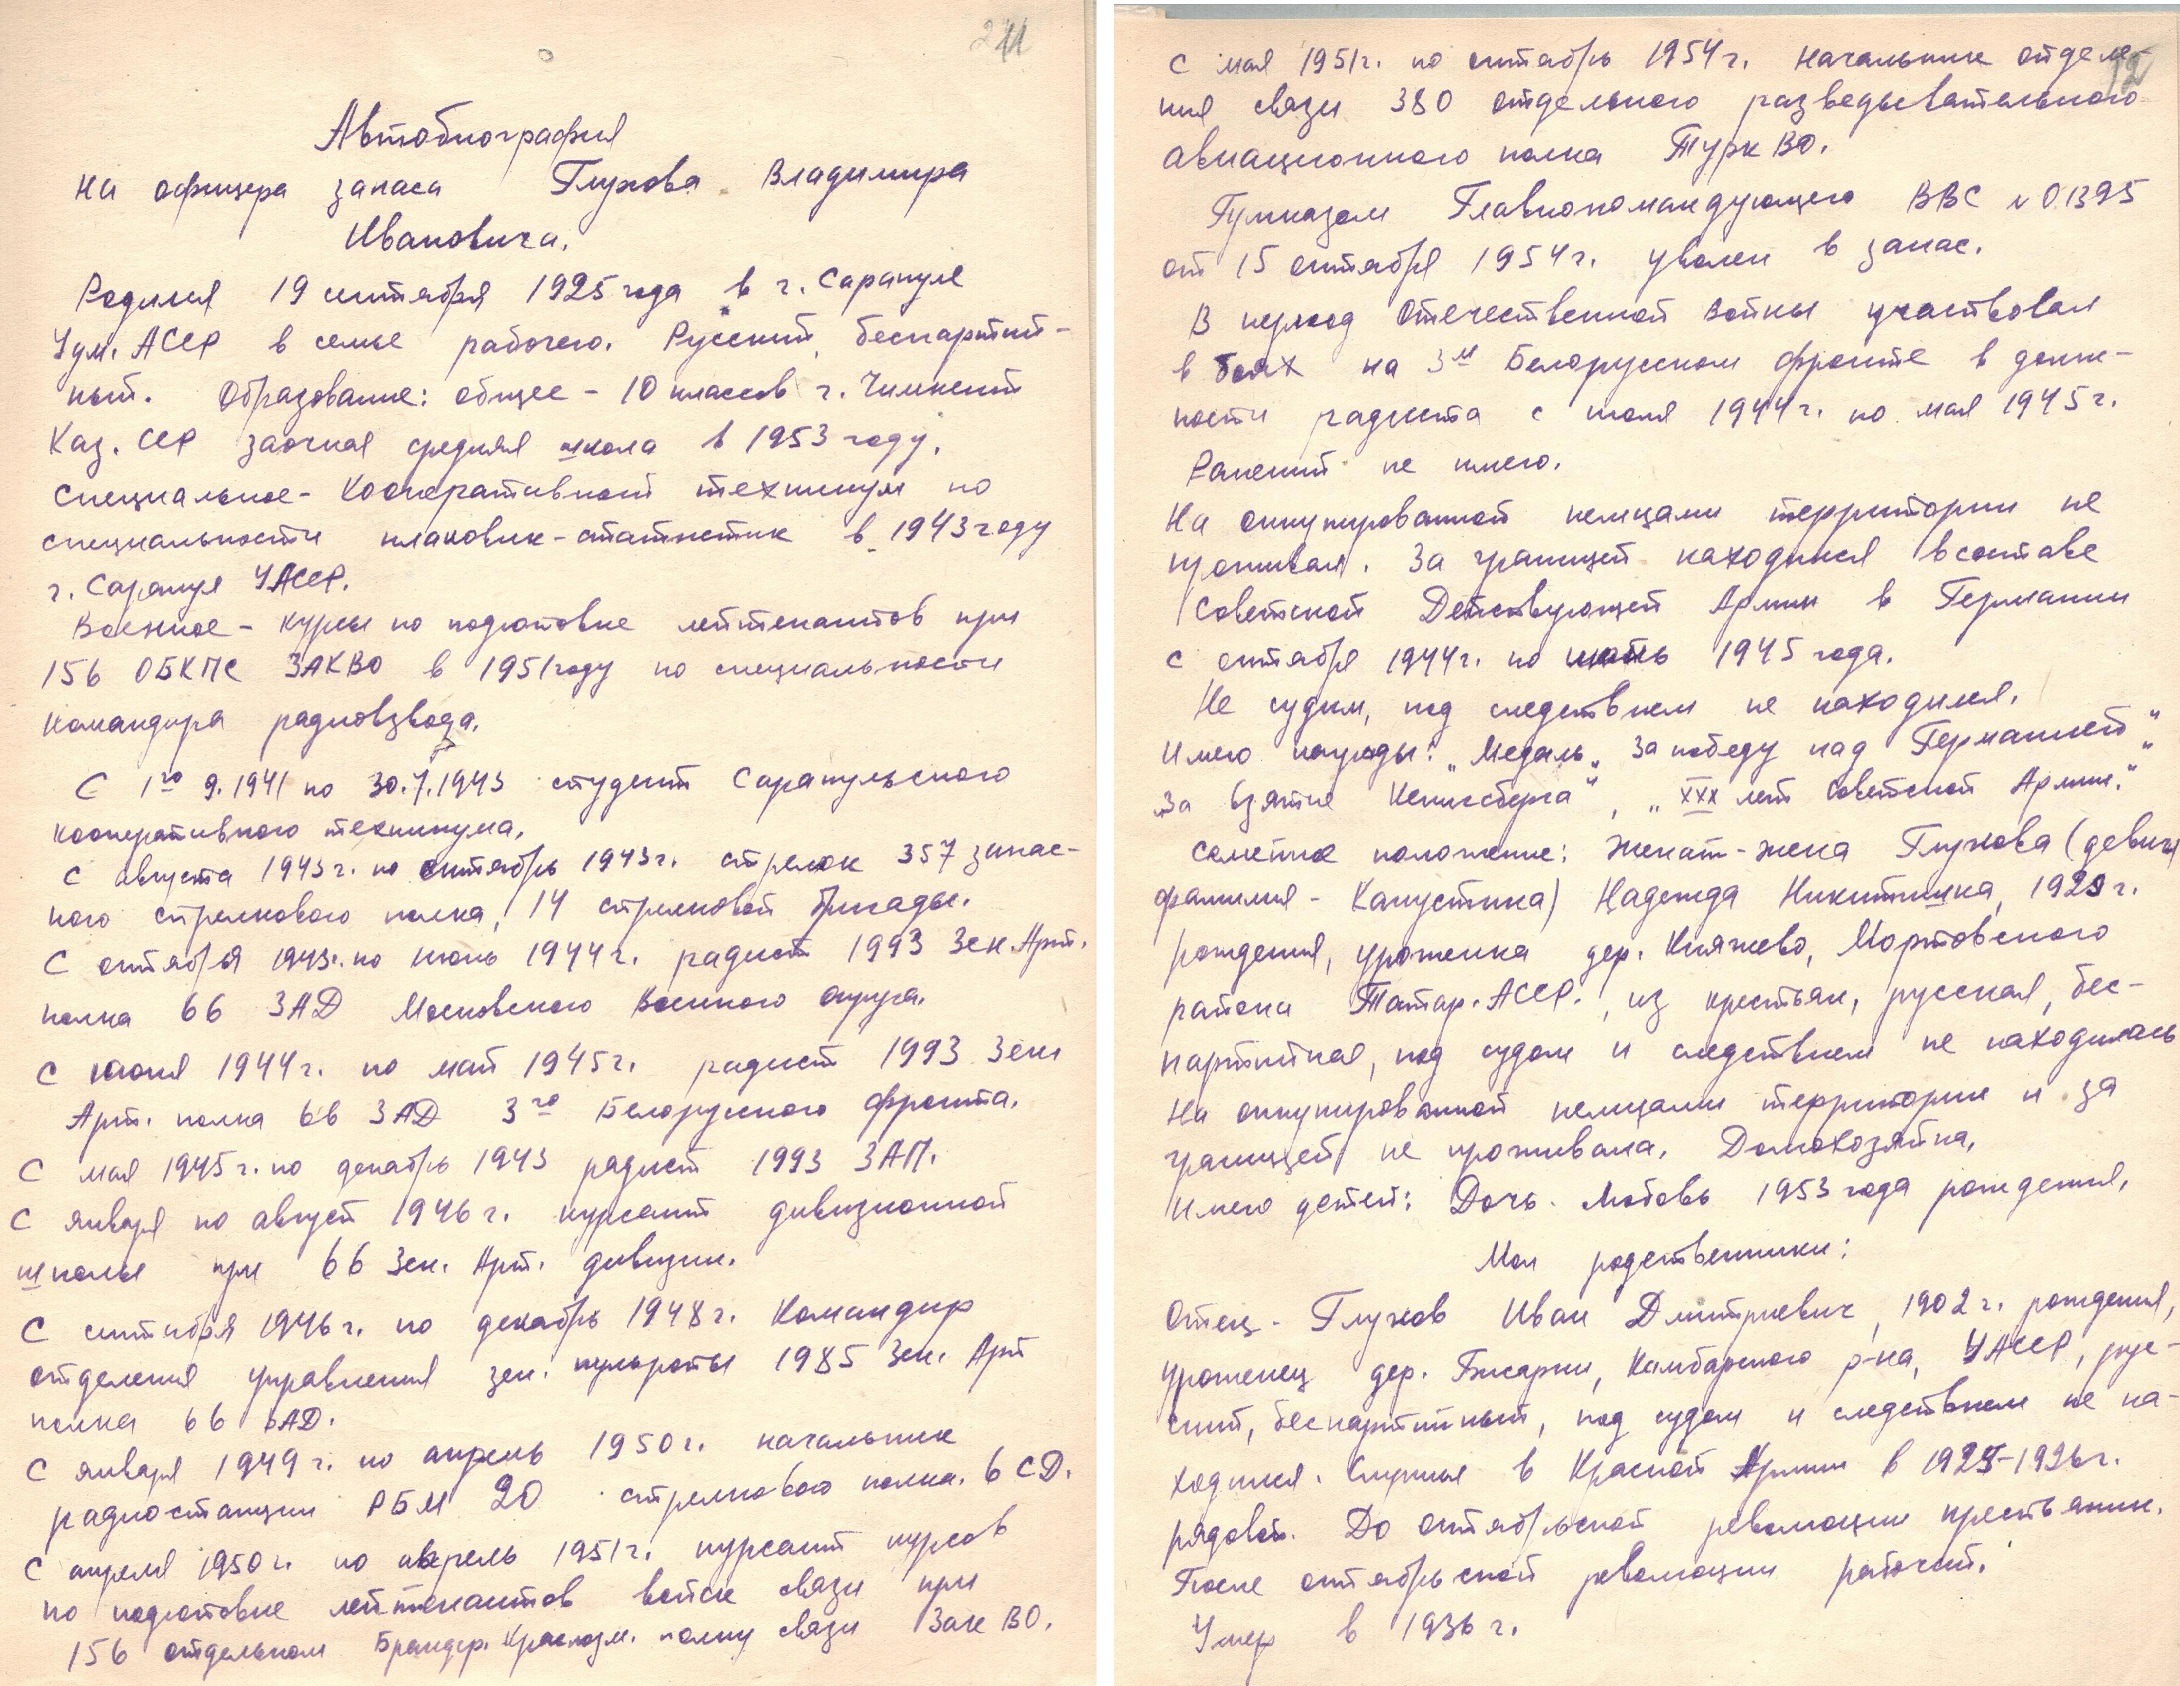 11
Автобиография
на офицера запаса Глухова Владимира
Ивановича.
Родился 19 сентября 1925 года в г. Сарапуле
Удм. АССР в семье рабочего. Русский, беспартий-
ный. Образование: общее - 10 классов г. Чимкент
Каз. ССР заочная средняя школа в 1953 году.
Специальное - Кооперативный техникум по
специальности плановик-статистик в 1943 году
г. Сарапул УАССР.
Военное - курсы по подготовке лейтенантов при
156 ОБКПС ЗАКВО в 1951 году по специальности
командира радиовзвода.
С 1го 9.1941 по 30.7.1943 студент Сарапульского
кооперативного техникума.
С августа 1943 г. по октябрь 1943 г. стрелок 357 запас-
ного стрелкового полка, 14 стрелковой бригады.
С октября 1943 г. по июнь 1944 г. радист 1993 Зен. Арт.
полка 66 ЗАД Московского Военного округа.
С июня 1944 г. по май 1945 г. радист 1993 Зен
Арт. полка 66 ЗАД 3го Белорусского фронта.
С мая 1945 г. по декабрь 1945 радист 1993 ЗАП.
С января по август 1946 г. курсант дивизионной
школы при 66 Зен. Арт. дивизии.
С сентября 1946 г. по декабрь 1948 г. Командир
отделения управления зен. пульроты 1985 Зен. Арт
полка 66 ЗАД.
С января 1949 г. по апрель 1950 г. начальник
радиостанции РБМ 20 стрелкового полка. 6 СД.
С апреля 1950 г. по апрель 1951 г. курсант курсов
по подготовке лейтенантов войск связи при
156 отдельном Брандер. Краснозн. полку связи Зак ВО.
С мая 1951 г. по октябрь 1954 г. начальник отделе-
ния связи 380 отдельного разведывательного
авиационного полка ТуркВО.
Приказом Главнокомандующего ВВС № 01395
от 15 октября 1954 г. уволен в запас.
В период Отечественной Войны участвовал
в боях на 3м Белорусском фронте в долж-
ности радиста с июля 1944 г. по мая 1945 г.
Ранений не имею.
На оккупированной немцами территории не
проживал. За границей находился в составе
Советской Действующей Армии в Германии
с октября 1944 г. по 1945 года.
Не судим, под следствием не находился.
Имею награды: „Медаль „За победу над Германией"„
За взятие Кенигсберга", „XXX лет Советской Армии."
Семейное положение: женат - жена Глухова (девичья
фамилия - Капустина) Надежда Никитишна, 1929 г.
рождения, уроженка дер. Княжево, Мортовского
района Татар. АССР., из крестьян, русская, бес-
партийная, под судом и следствием не находилась
На оккупированной немцами территории и за
границей не проживала. Домохозяйка.
Имею детей: Дочь - Любовь 1953 года рождения.
Мои родственники:
Отец - Глухов Иван Дмитриевич, 1902 г. рождения,
уроженец дер. Бисарки, Камбарского р-на, УАССР, рус-
ский, беспартийный, под судом и следствием не на-
ходился. Служил в Красной Армии в 1925-1926 г.
рядовой. До октябрьской революции крестьянин.
После октябрьской революции рабочий.
Умер в 1936 г.